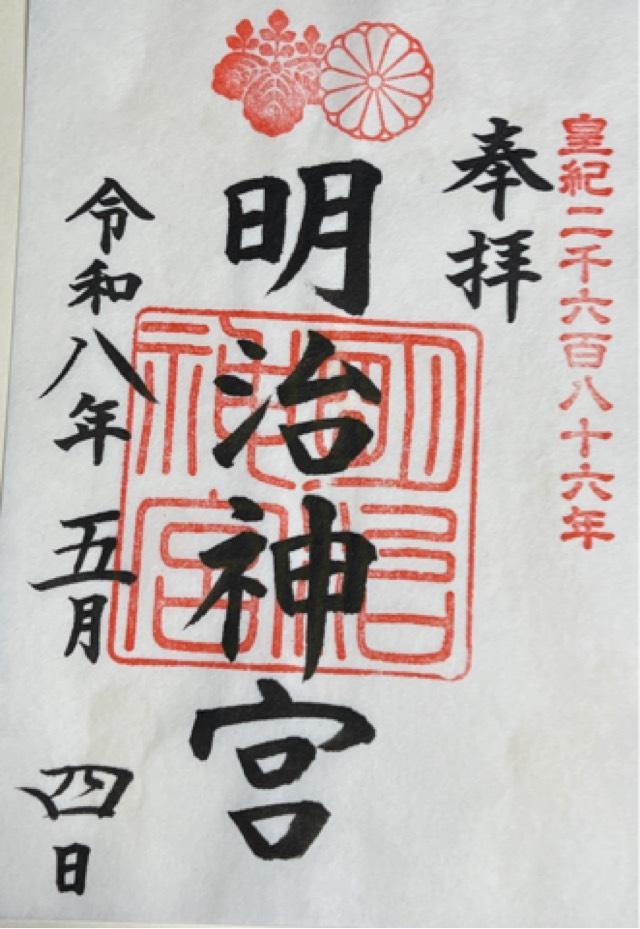 皇紀二千六百八十六年
奉拝
明治神宮
明治神宮
令和八年 五月 四日